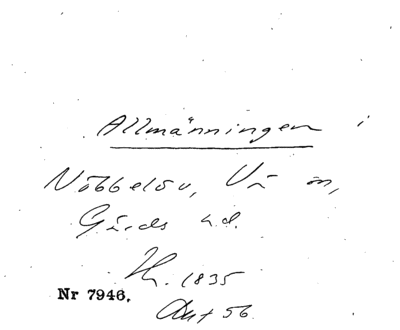 Allmänningen i
Nöbbelöv, Vä sn,
Gärds hd.
Hz. 1835
Nr 7946.
Akt 56